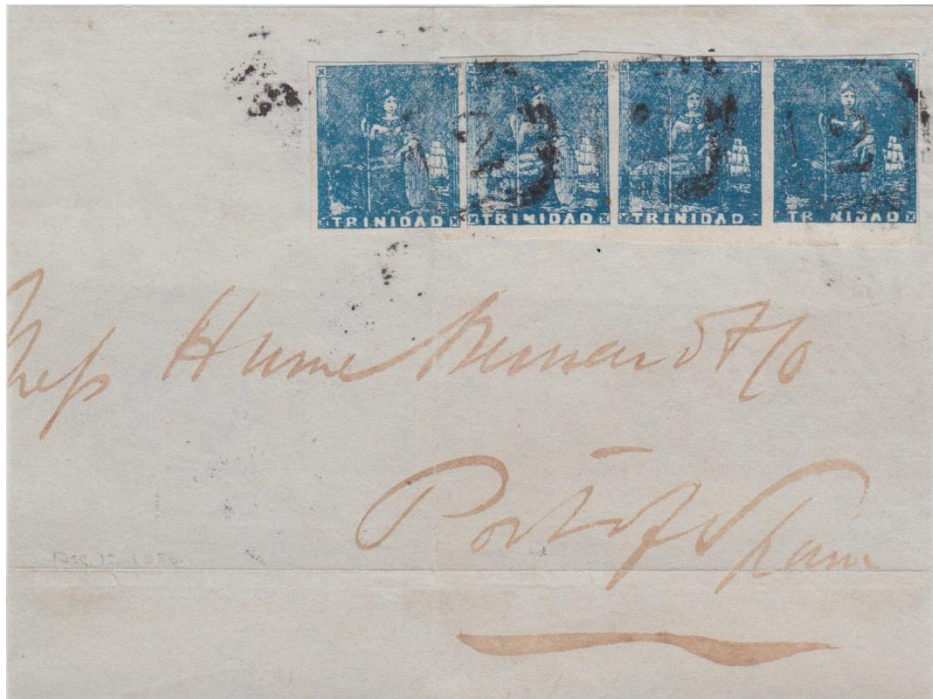 TRINIDAD TRINIDAD TRINIDAD TRINIDAD
Mess Hume Bernard & Co
Port of Spain